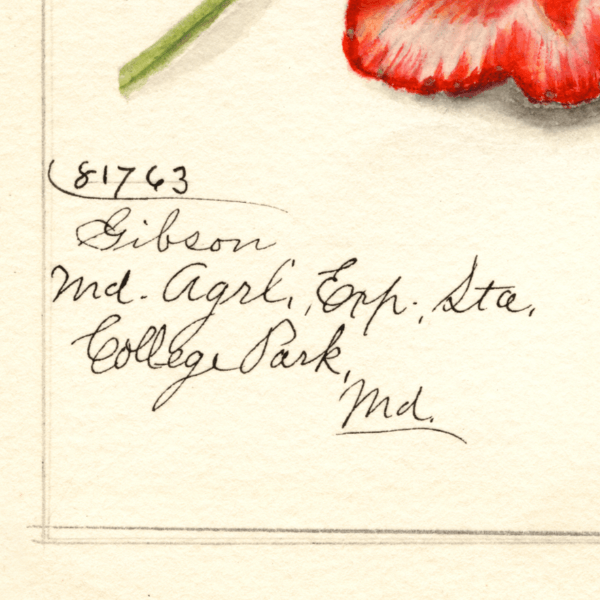 81763
Gibson
Md. Agrl., Exp. Sta.
College Park,
Md.